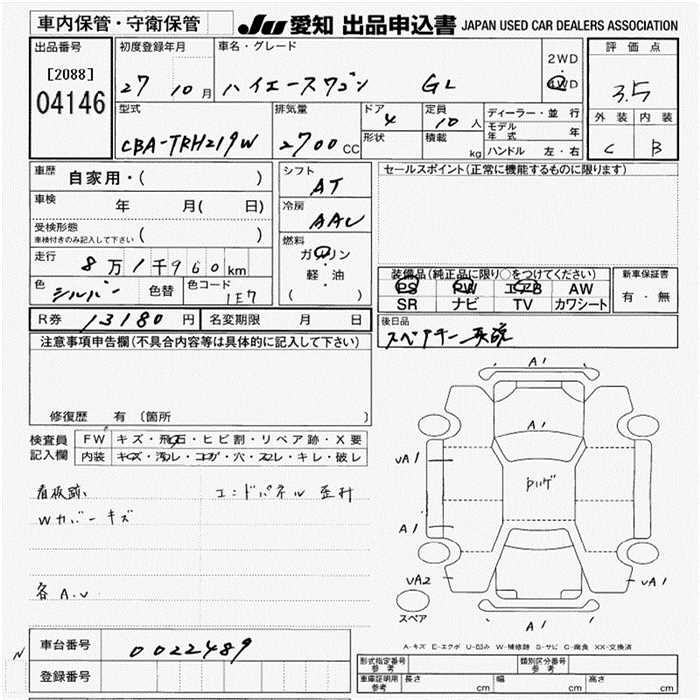 車内保管・守衛保管
JU 愛知 出品申込書 JAPAN USED CAR DEALERS ASSOCIATION
出品番号
[2088]
04146
初度登録年月
27 10 月
車名・グレード
ハイエースワゴン GL
2WD
・
4WD
評価点
3.5
外装 内装
C B
型式
CBA-TRH219W
排気量
2700 CC
ドア
4
形状
定員
10 人
積載
kg
ディーラー・並行
モデル年式 年
ハンドル 左・右
車歴 自家用・( )
車検 年 月( 日)
受検形態
車検付きのみ記入して下さい ( )
走行 8万1千960km
色 シルバー 色替 色コード 1E7
シフト
AT
冷房
AAC
燃料
ガソリン
・
軽・油
( )
セールスポイント(正常に機能するものに限ります)
装備品(純正品に限り○をつけてください)
PS PW エアB AW
SR ナビ TV カワシート
新車保証書
有・無
R券 13180 円 名変期限 月 日
後日品
スペアキー
注意事項申告欄(不具合内容等は具体的に記入して下さい)
修復歴 有 〔箇所 〕
検査員記入欄
FW キズ・飛石・ヒビ割・リペア跡・X要
内装 キズ・汚レ・コゲ・穴・スレ・キレ・破レ
看板跡 エンドパネル 歪
Wカバーキズ
各A.U
A1
A1
UA1
A1
UA2
UA1
A1
A1
スペア
A-キズ E-エクボ U-凹み W-補修跡 S-サビ C-腐食 XX-交換済
N
車台番号 0022489
登録番号
形式指定番号 参考
類別区分番号 参考
車庫証明用 参考 長さ cm 幅 cm 高さ cm